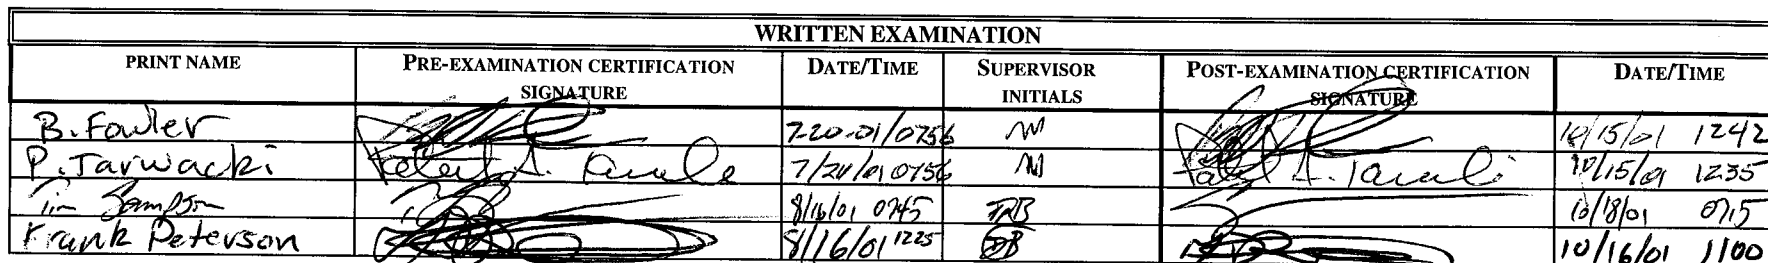 WRITTEN EXAMINATION
PRINT NAME PRE-EXAMINATION CERTIFICATION SIGNATURE DATE/TIME SUPERVISOR INITIALS POST-EXAMINATION CERTIFICATION SIGNATURE DATE/TIME
B. Fowler 7-20-01/0756 10/15/01 1242
P. Tarwacki 7/20/01 0756 10/15/01 1235
Tim Sampson 8/16/01 0745 TRB 10/18/01 0715
Frank Peterson 8/16/01 1225 10/16/01 1100